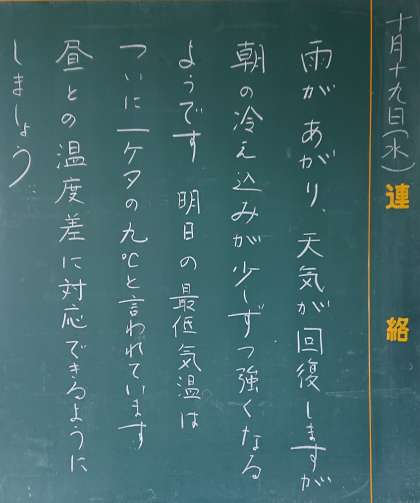 十月十九日(水)
連絡
雨があがり、天気が回復しますが
朝の冷え込みが少しずつ強くなる
ようです 明日の最低気温は
ついに一ケタの九℃と言われています
昼との温度差に対応できるように
しましょう